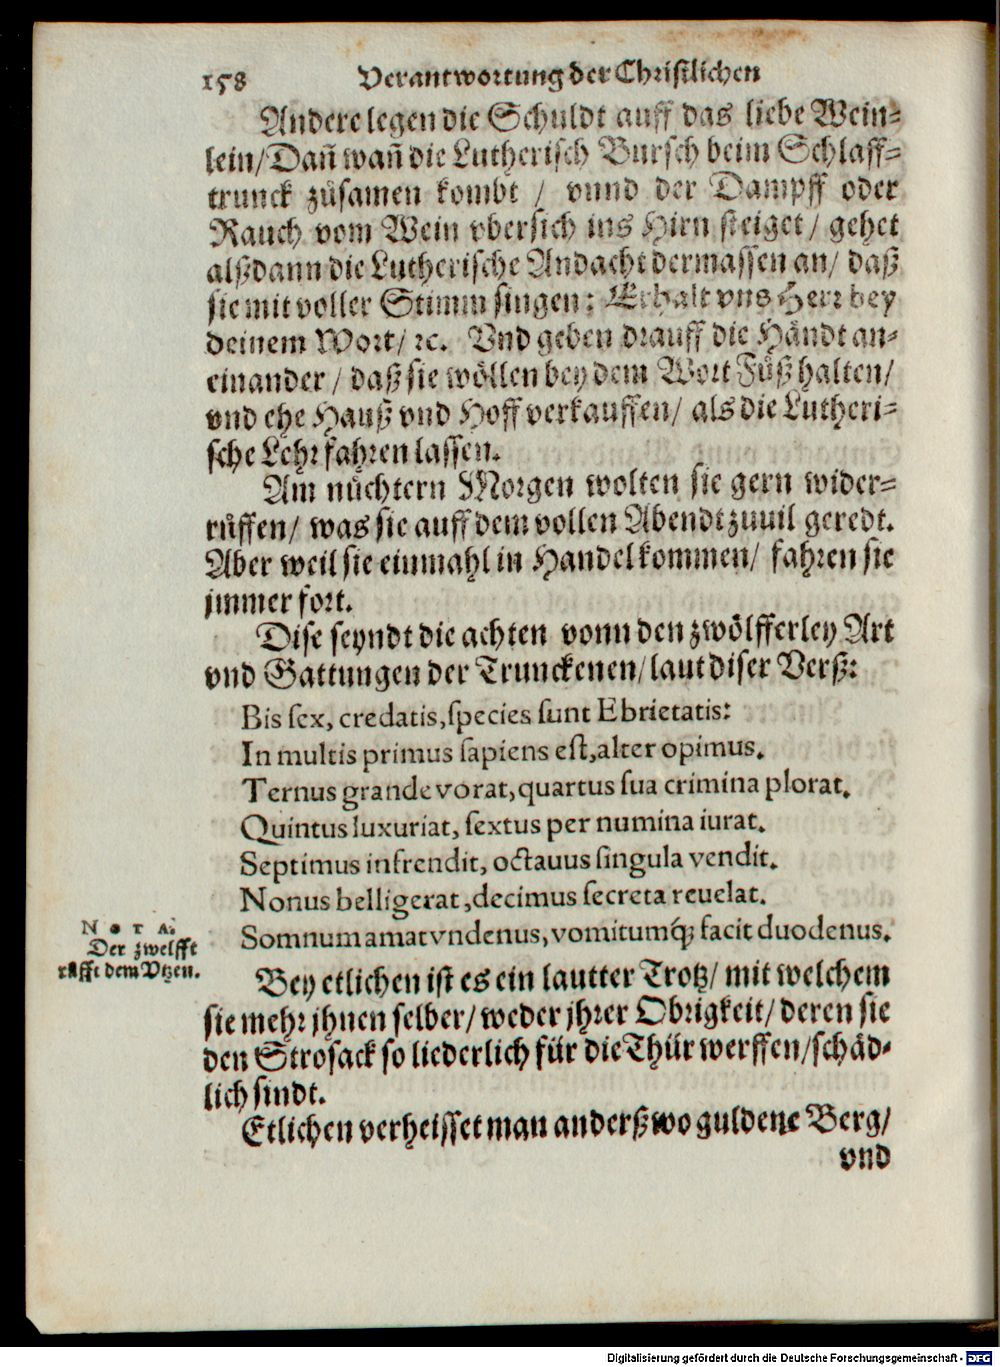 158 Verantwortung der Christlichen
Andere legen die Schuldt auff das liebe Wein-
lein/ Dañ wañ die Lutherisch Bursch beim Schlaff-
trunck zůsamen kombt / vnnd der Dampff oder
Rauch vom Wein vbersich ins Hirn steiget/ gehet
alßdann die Lutherische Andacht dermassen an/ daß
sie mit voller Stimm singen: Erhalt vns Herr bey
deinem Wort/ ꝛc. Vnd geben drauff die Händt an-
einander / daß sie wöllen bey dem Wort Fůß halten/
vnd ehe Hauß vnd Hoff verkauffen/ als die Lutheri-
sche Lehr fahren lassen.
Am nüchtern Morgen wolten sie gern wider-
růffen/ was sie auff dem vollen Abendt zuuil geredt.
Aber weil sie einmahl in Handel kommen/ fahren sie
jmmer fort.
Dise seyndt die achten vonn den zwölfferley Art
vnd Gattungen der Trunckenen/ laut diser Verß:
Bis sex, credatis, species sunt Ebrietatis:
In multis primus sapiens est, alter opimus.
Ternus grande vorat, quartus sua crimina plorat.
Quintus luxuriat, sextus per numina iurat.
Septimus infrendit, octauus singula vendit.
Nonus belligerat, decimus secreta reuelat.
Somnum amat vndenus, vomitumq́; facit duodenus.
NOTA.
Der zwelfft
růfft dem Vtzen.
Bey etlichen ist es ein lautter Trotz/ mit welchem
sie mehr jhnen selber/ weder jhrer Obrigkeit/ deren sie
den Strosack so liederlich für die Thür werffen/ schäd-
lich sindt.
Etlichen verheisset man anderßwo guldene Berg/
vnd
Digitalisierung gefördert durch die Deutsche Forschungsgemeinschaft - DFG